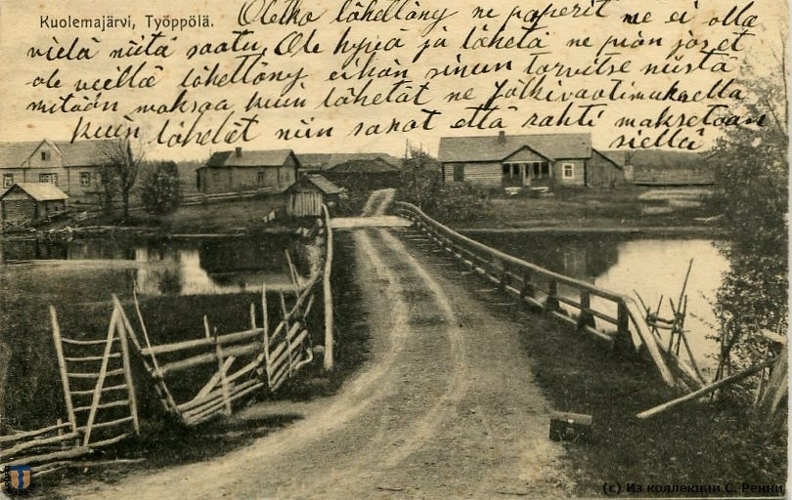 Kuolemajärvi, Työppölä.
Oletko lähettäny ne paperit me ei olla
vielä niitä saatu, Ole hyvä ja lähetä ne pian jos et
ole vielä lähettäny eihän sinun tarvitse niistä
mitään maksaa kuin lähetät ne Jälkivaatimuksella
kuin lähetät niin sanot että rahti maksetaan
siellä
(c) Из коллекции С. Ренни